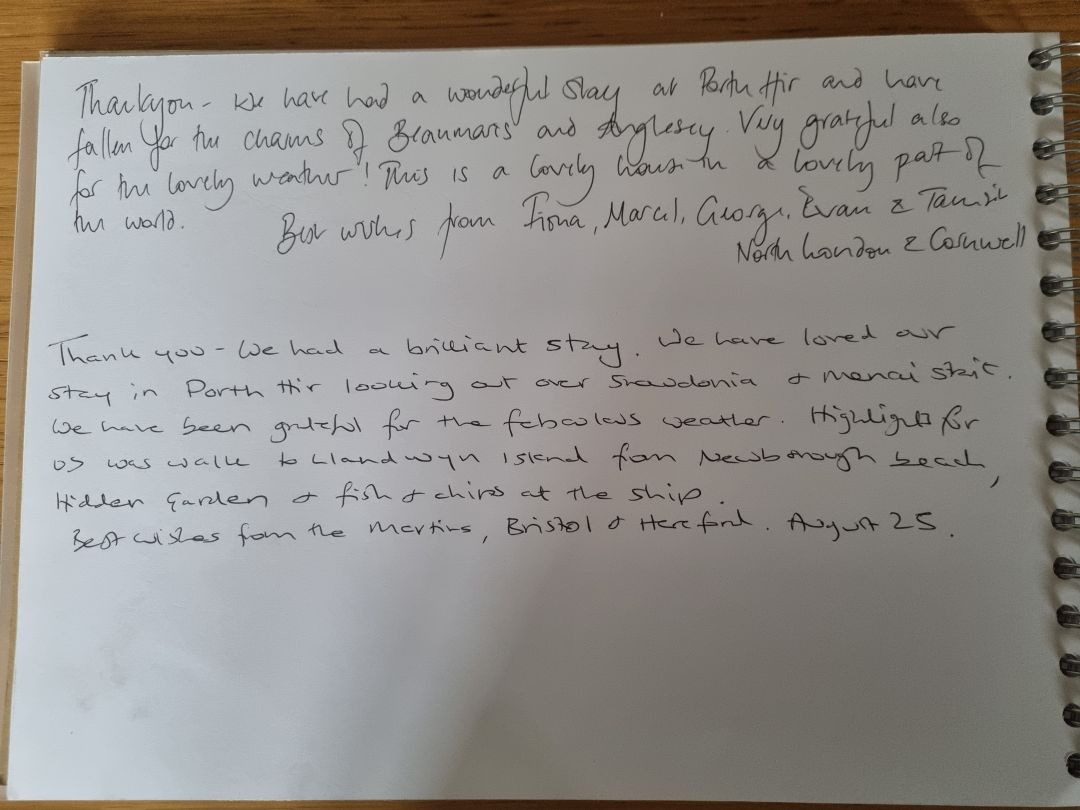 Thankyou - We have had a wonderful stay at Porth Hir and have
fallen for the charms of Beaumaris and Anglesey. Very grateful also
for the lovely weather! This is a lovely house in a lovely part of
the world.
Best wishes from Fiona, Marcel, George, Evan & Tamsin
North London & Cornwell
Thank you - We had a brilliant stay. We have loved our
stay in Porth Hir looking out over Snowdonia & Menai Strait.
We have been grateful for the fabulous weather. Highlights for
us was walk to Llandwyn Island from Newborough beach,
Hidden Garden & fish & chips at the ship.
Best wishes from the Martins, Bristol & Hereford. August 25.